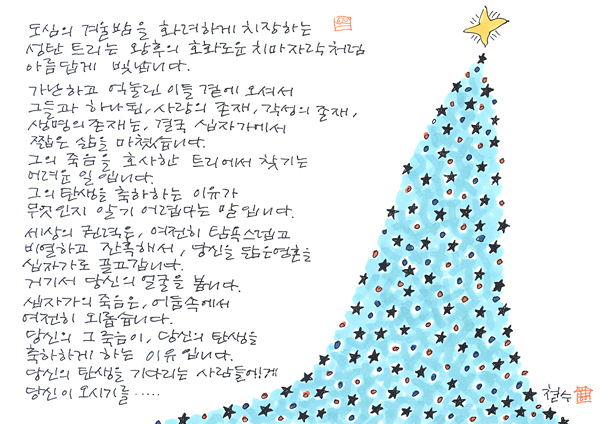 도심의 겨울밤을 화려하게 치장하는
성탄 트리는 왕후의 호화로운 치마자락처럼
아름답게 빛납니다.
가난하고 억눌린 이들 곁에 오셔서
그들과 하나된, 사랑의 존재, 각성의 존재,
생명의 존재는, 결국 십자가에서
짧은 삶을 마쳤습니다.
그의 죽음을 호사한 트리에서 찾기는
어려운 일입니다.
그의 탄생을 축하하는 이유가
무엇인지 알기 어렵다는 말입니다.
세상의 권력은, 여전히 탐욕스럽고
비열하고 잔혹해서, 당신을 닮은 영혼을
십자가로 끌고갑니다.
거기서 당신의 얼굴을 봅니다.
십자가의 죽음은, 어둠속에서
여전히 외롭습니다.
당신의 그 죽음이, 당신의 탄생을
축하하게 하는 이유입니다.
당신의 탄생을 기다리는 사람들에게
당신이 오시기를.....
철수